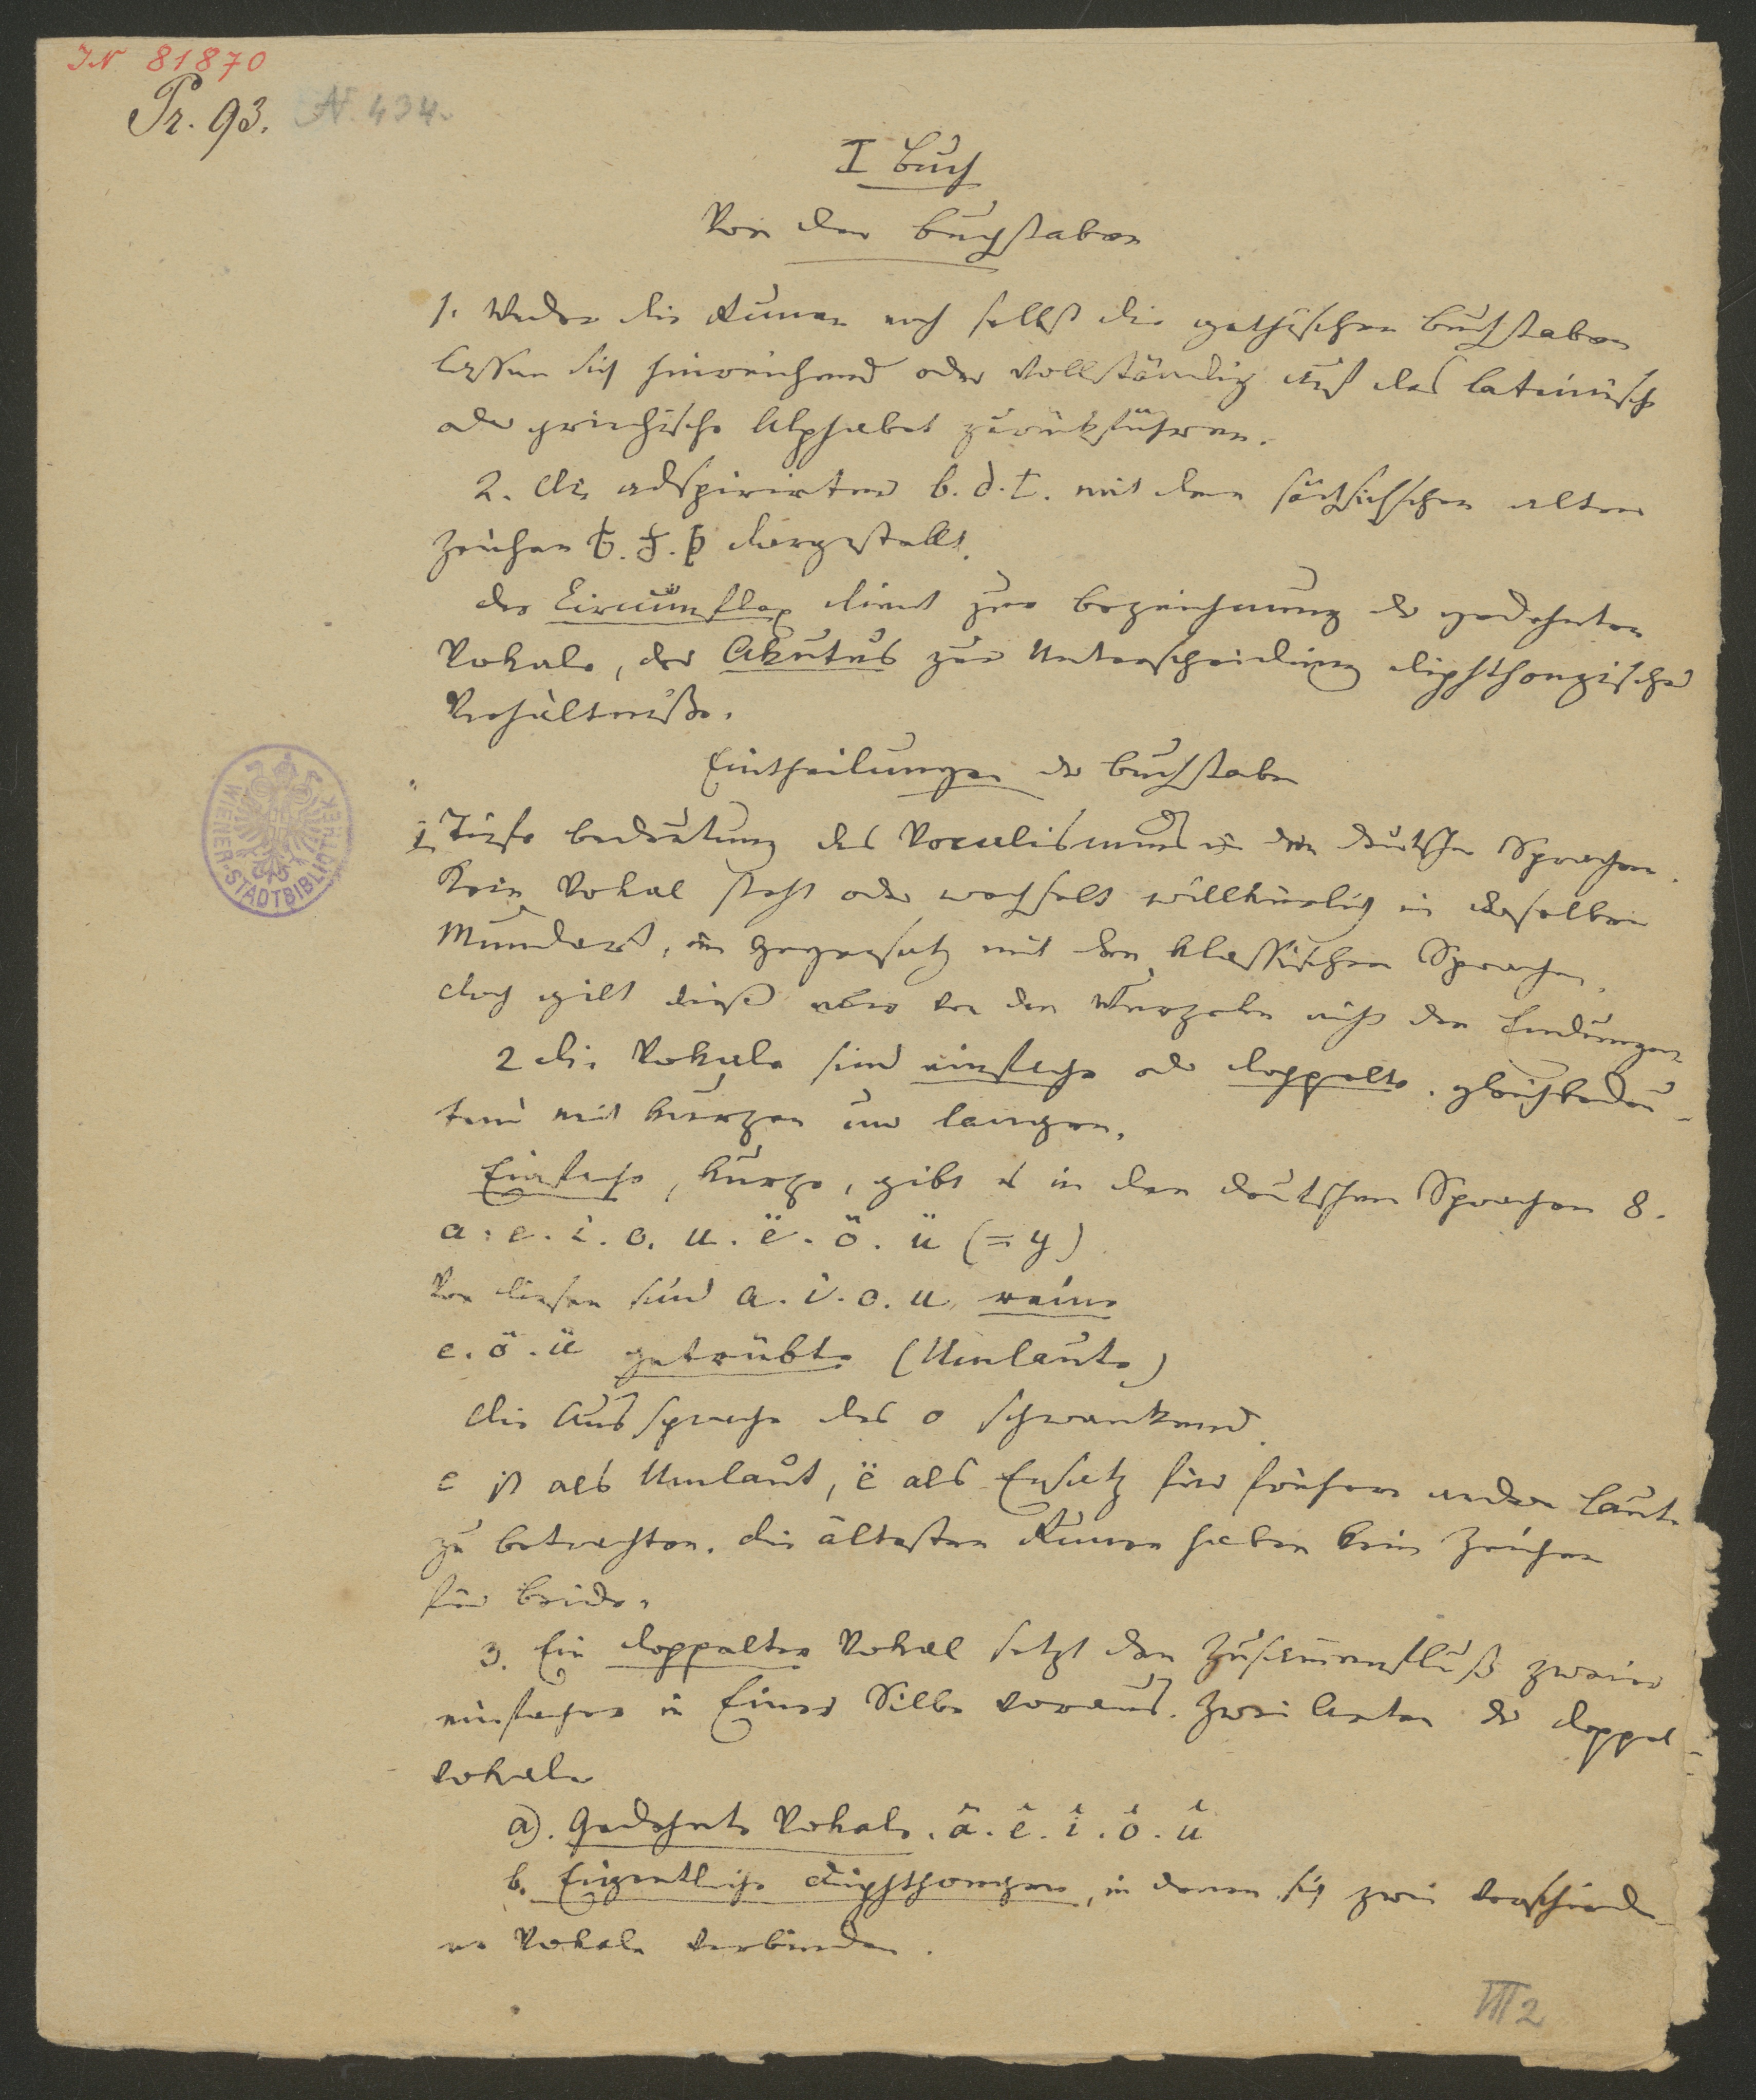 IN 81870
Pr. 93. N. 434.
I Buch
Von den Buchstaben
1. Weder die Runen noch selbst die gothischen Buchstaben
lassen sich hinreichend oder vollständig auf das lateinische
oder griechische Alphabet zurückführen.
2. die adspirirten b. d. t. mit den sächsischen alten
Zeichen ƀ. đ. þ dargestellt.
der Circumflex dient zur Bezeichnung der gedehnten
Vokale, der Akutus zur Unterscheidung diphthongischer
Verhältniße.
Eintheilungen der Buchstaben
1. Tiefe Bedeutung des Vocalismus in den deutschen Sprachen.
Kein Vokal steht oder wechselt willkürlich in derselben
Mundart, im Gegensatz mit den klassischen Sprachen.
doch gilt dieß nur von den Wurzeln nicht den Endungen
2 die Vokale sind einfache oder doppelte. gleichbedeu-
tend mit kurzen und langen.
Einfache, kurze, gibt es in den deutschen Sprachen 8.
a. e. i. o. u. ë. ö. ü (= y)
Von diesen sind a. i. o. u. reine
e. ö. ü getrübte (Umlaute)
die Aussprache des o schwankend.
e ist als Umlaut, ë als Ersatz für frühere andere Laute
zu betrachten. die ältesten Runen haben kein Zeichen
für beide.
3. Ein doppelter Vokal setzt den Zusammenfluß zweier
einfacher in Einer Silbe voraus. Zwei Arten der Doppel-
vokale
a). Gedehnte Vokale. â. ê. î. ô. û
b. Eigentliche Diphthongen, in denen sich zwei verschiede-
ne Vokale verbinden.
WIENER STADTBIBLIOTHEK
III 2